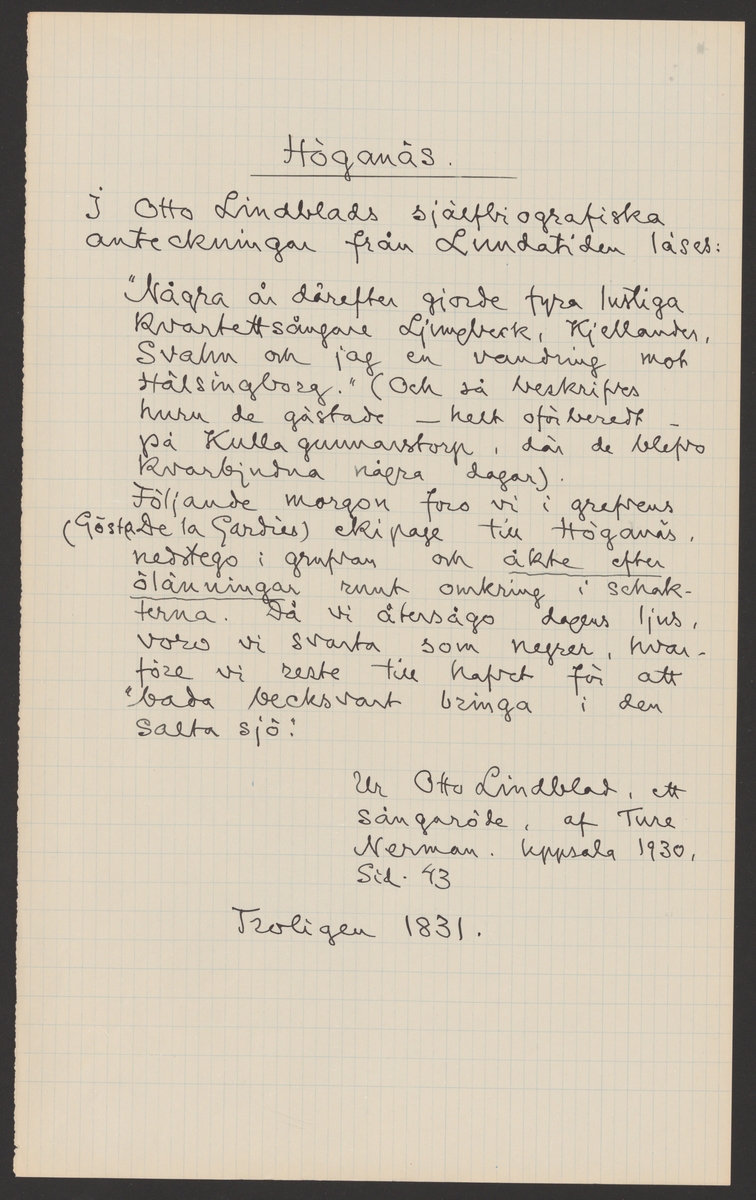 Höganäs.
I Otto Lindblads själfbiografiska
anteckningar från Lundatiden läses:
"Några år därefter gjorde fyra lustiga
kvartettsångare Ljungbeck, Kjellander,
Svahn och jag en vandring mot
Hälsingborg." (Och så beskrifves
huru de gästade – helt oförberedt –
på Kulla gunnarstorp, där de blefvo
kvarbjudna några dagar).
Följande morgon foro vi i grefvens
(Gösta De la Gardies) ekipage till Höganäs,
nedstego i grufvan och åkte efter
ölänningar runt omkring i schak-
terna. Då vi återsågo dagens ljus,
voro vi svarta som negrer, hvar-
före vi reste till hafvet för att
"bada becksvart bringa i den
salta sjö".
Ur Otto Lindblad, ett
sångaröde, af Ture
Nerman. Uppsala 1930,
Sid. 43
Troligen 1831.